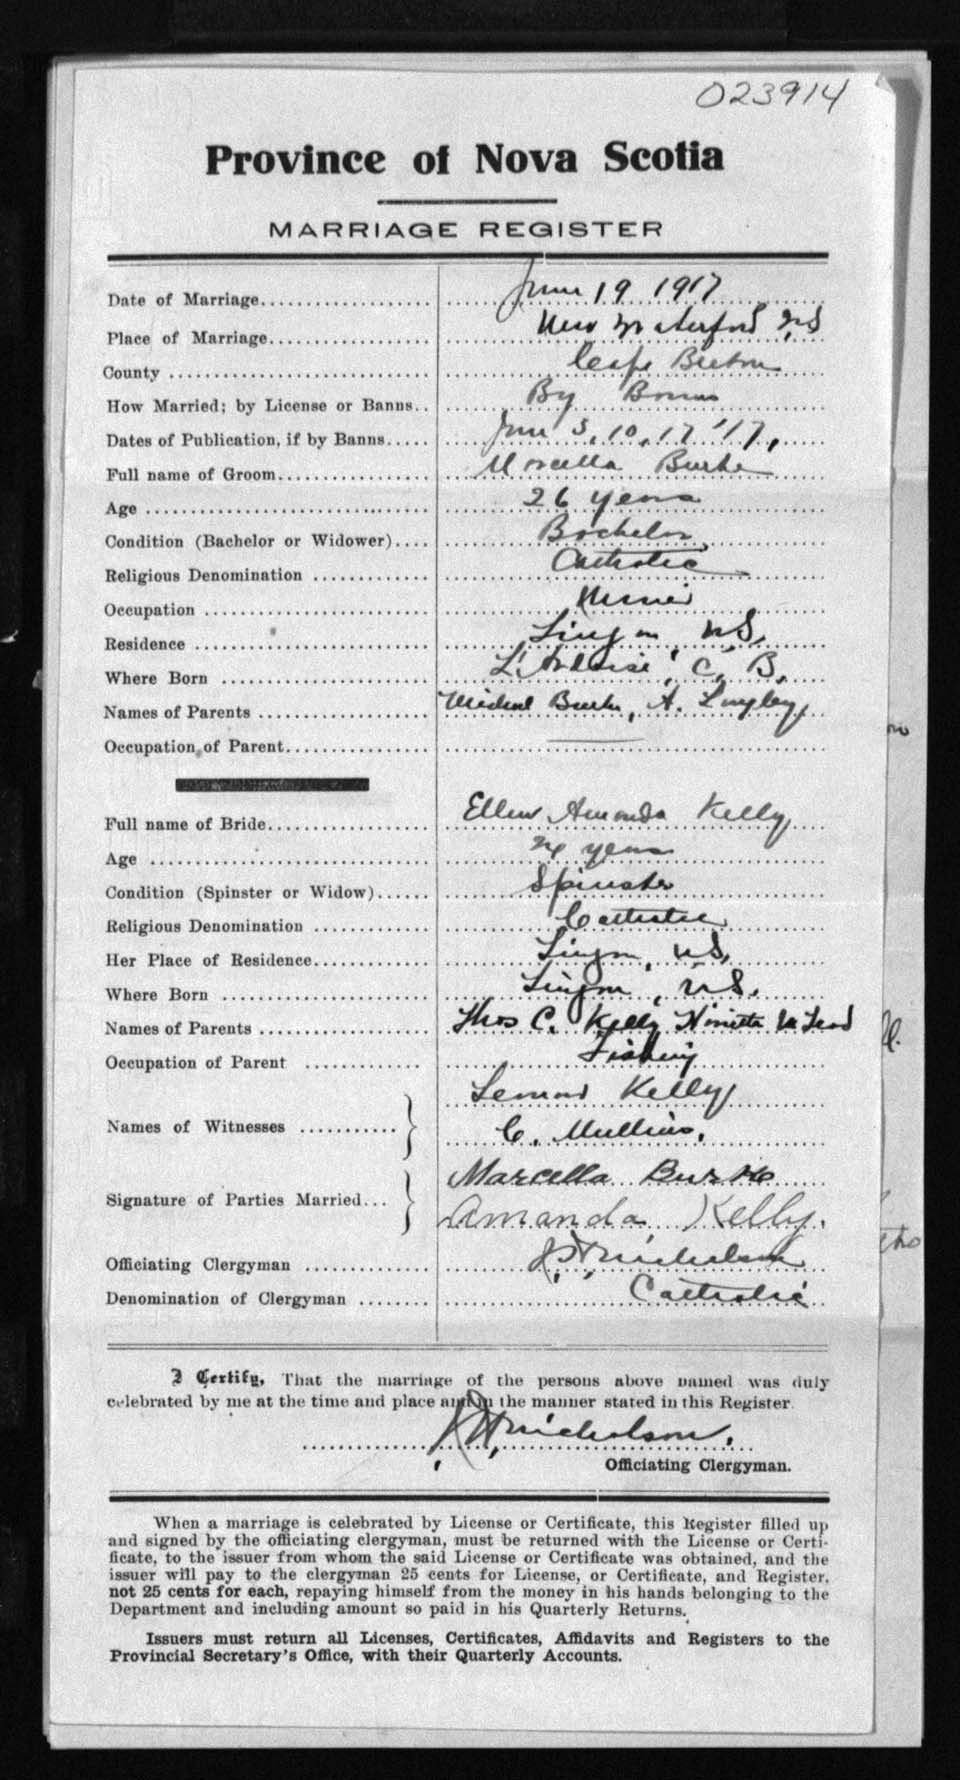 023914
Province of Nova Scotia
MARRIAGE REGISTER
Date of Marriage.................. June 19 1917
Place of Marriage.................. New Waterford NS
County .................. Cape Breton
How Married; by License or Banns.. By Banns
Dates of Publication, if by Banns..... June 3, 10, 17 '17,
Full name of Groom.................. Marcella Burke
Age .................. 26 years
Condition (Bachelor or Widower).... Bachelor
Religious Denomination .................. Catholic
Occupation .................. Miner
Residence .................. Lingan, NS,
Where Born .................. L'Ardoise, C, B,
Names of Parents .................. Michael Burke, A. Langley,
Occupation of Parent..................
Full name of Bride.................. Ellen Amanda Kelly
Age .................. 24 years
Condition (Spinster or Widow)...... Spinster
Religious Denomination .................. Catholic
Her Place of Residence............. Lingan, NS,
Where Born .................. Lingan, NS.
Names of Parents .................. Thos C. Kelly
Occupation of Parent ............. Fishing
Names of Witnesses ........... Kelly
C. Mullins,
Signature of Parties Married... Marcella Burke
Amanda Kelly.
Officiating Clergyman .............. J. H. Nicholson
Denomination of Clergyman ........ Catholic
I Certify, That the marriage of the persons above named was duly
celebrated by me at the time and place and in the manner stated in this Register.
J. H. Nicholson.
Officiating Clergyman.
When a marriage is celebrated by License or Certificate, this Register filled up
and signed by the officiating clergyman, must be returned with the License or Certi-
ficate, to the issuer from whom the said License or Certificate was obtained, and the
issuer will pay to the clergyman 25 cents for License, or Certificate, and Register,
not 25 cents for each, repaying himself from the money in his hands belonging to the
Department and including amount so paid in his Quarterly Returns.
Issuers must return all Licenses, Certificates, Affidavits and Registers to the
Provincial Secretary's Office, with their Quarterly Accounts.